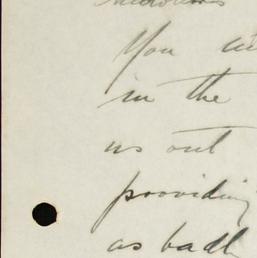 You
in the
us out
providing
as badly